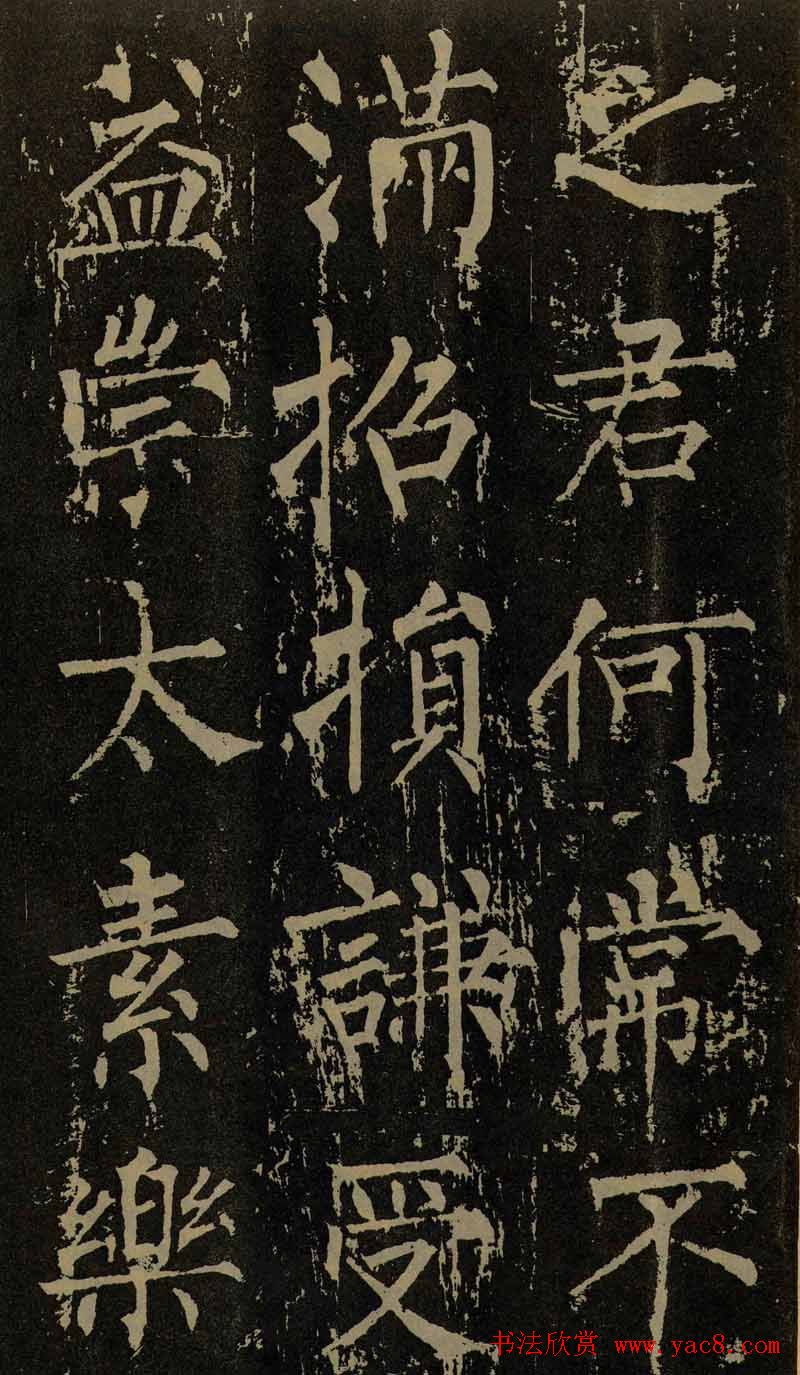 之君何常不
滿招損謙受
益崇太素樂
书法欣赏 www.yac8.com